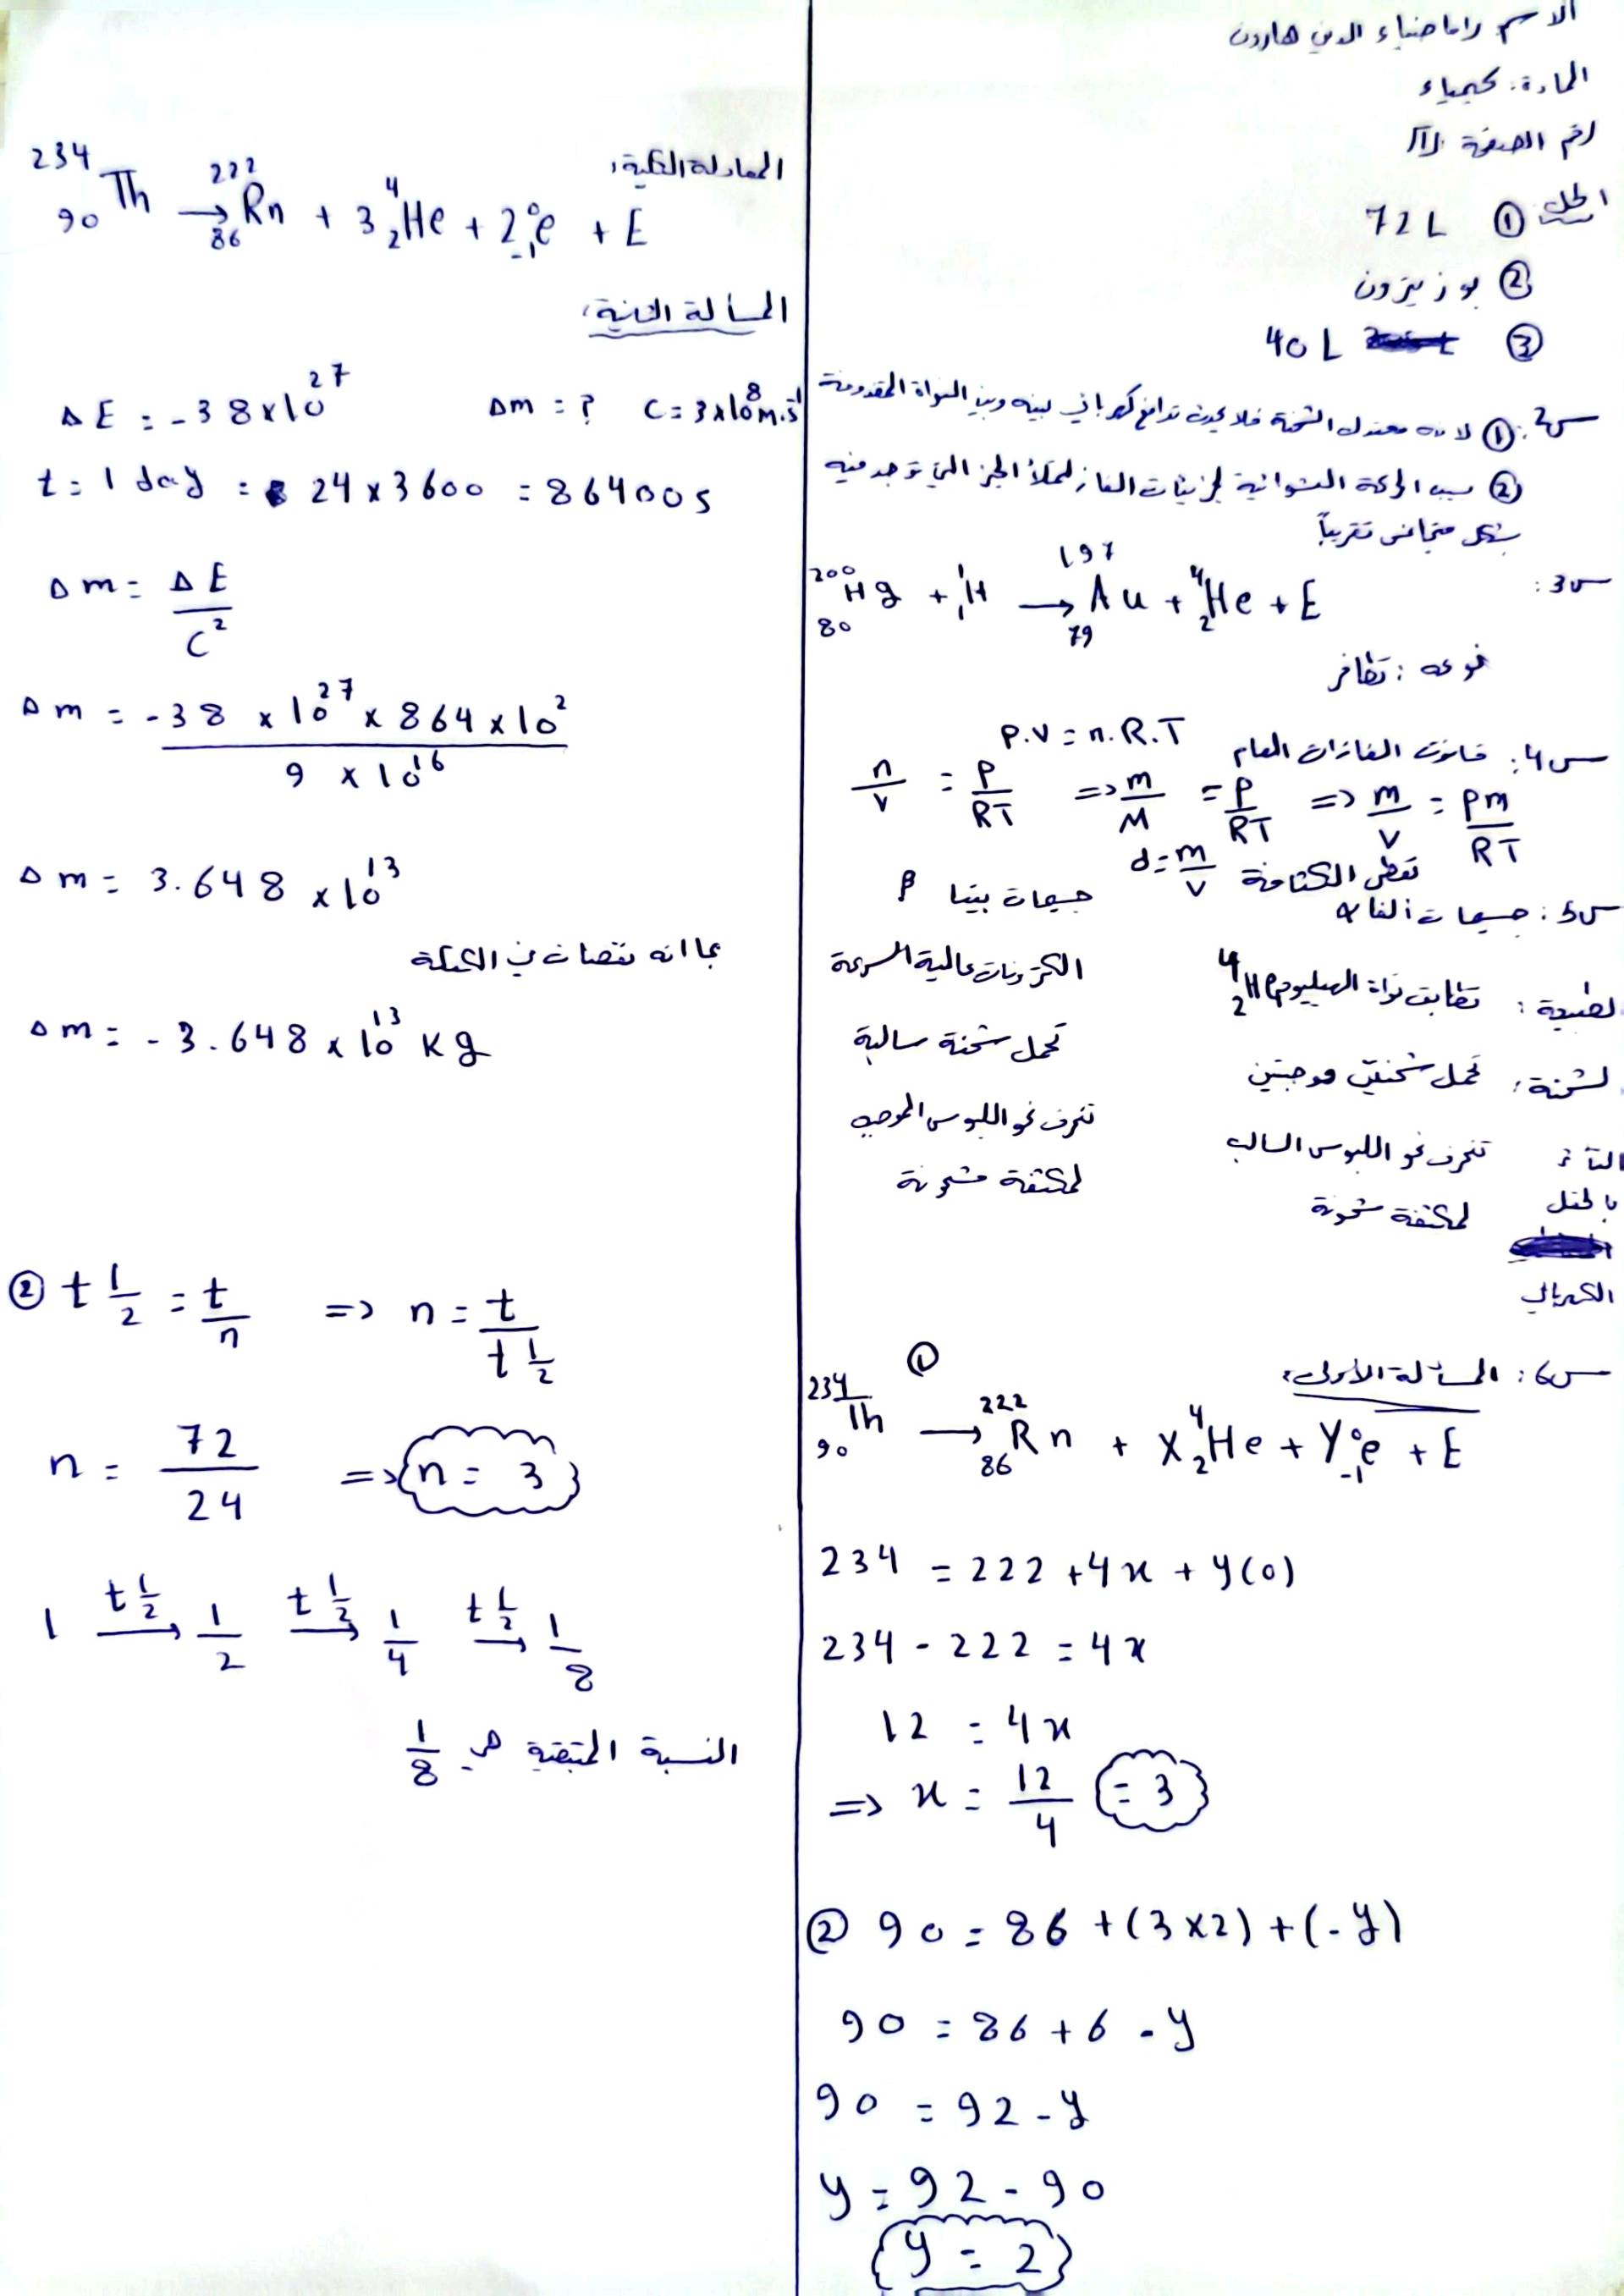 الاسم راما ضياء الدين هارون
المادة: كيمياء
رقم الصفحة
الحل ① 72 L
② بوزيترون
③ 40 L
س2: ① لأنه معتدل الشحنة فلا يحدث تدافع كهربائي بينه وبين النواة المقذوفة
② بسبب الحركة العشوائية لجزيئات الغاز لتملأ الحيز التي توجد فيه
بشكل متجانس تقريباً
س3: ²⁰⁰₈₀Hg + ¹₁H → ¹⁹⁷₇₉Au + ⁴₂He + E
نوعه: تطافر
س4: قانون الغازات العام P.V = n.R.T
n/V = P/RT => m/M = P/RT => m/V = Pm/RT
تعطى الكثافة d = m/V
س5: جسيمات ألفا α جسيمات بيتا β
الطبيعة: تطابق نواة الهيليوم ⁴₂He الكترونات عالية السرعة
الشحنة: تحمل شحنتين موجبتين تحمل شحنة سالبة
التأثر بالحقل الكهربائي تنحرف نحو اللبوس السالب لمكثفة مشحونة تنحرف نحو اللبوس الموجب لمكثفة مشحونة
س6: المسألة الأولى:
① ²³⁴₉₀Th → ²²²₈₆Rn + X ⁴₂He + Y ⁰₋₁e + E
234 = 222 + 4x + y(0)
234 - 222 = 4x
12 = 4x
=> x = 12/4 = 3
② 90 = 86 + (3×2) + (-y)
90 = 86 + 6 - y
90 = 92 - y
y = 92 - 90
y = 2
المعادلة الكلية:
²³⁴₉₀Th → ²²²₈₆Rn + 3 ⁴₂He + 2 ⁰₋₁e + E
المسألة الثانية:
ΔE = -38×10²⁷ Δm = ? C = 3×10⁸ m.s⁻¹
t = 1 day = 24 × 3600 = 86400 s
Δm = ΔE/C²
Δm = -38 × 10²⁷ × 864 × 10² / 9 × 10¹⁶
Δm = 3.648 × 10¹³
بما انه نقصان في الكتلة
Δm = -3.648 × 10¹³ Kg
② t½ = t/n => n = t/t½
n = 72/24 => n = 3
1 →t½ 1/2 →t½ 1/4 →t½ 1/8
النسبة المتبقية هي 1/8